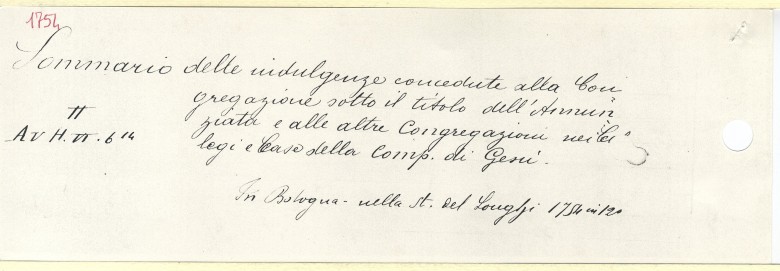 1754
Sommario delle indulgenze concedute alla Con
gregazione sotto il titolo dell'Annun
ziata e alle altre Congregazioni nei Col
legi e Case della Comp. di Gesù.
II
AV H. VI. 6 14
In Bologna - nella st. del Longhi 1754 in 12o